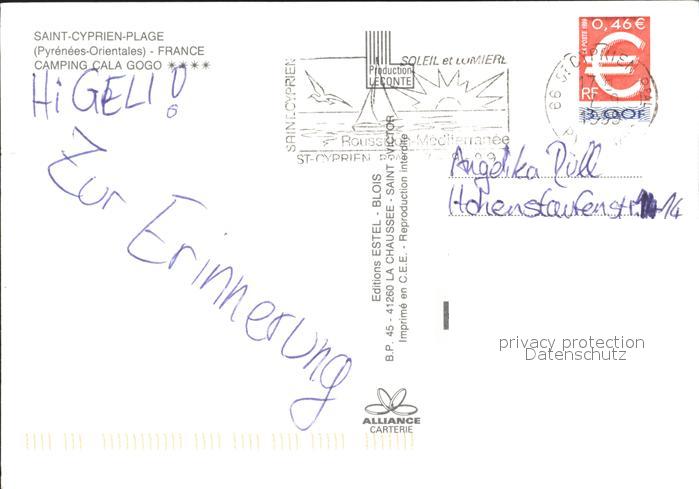 SAINT-CYPRIEN-PLAGE
(Pyrénées-Orientales) - FRANCE
CAMPING CALA GOGO ****
Hi GELI!
Zur Erinnerung
SAINT-CYPRIEN
Production
LECONTE
SOLEIL et LUMIERE
ST-CYPRIEN
0,46€
LA POSTE 1999
RF
3,00F
Angelika Rüll
Hohenstaufenstr. 14
Editions ESTEL - BLOIS
B.P. 45 - 41260 LA CHAUSSEE - SAINT-VICTOR
Imprimé en C.E.E. - Reproduction interdite
privacy protection
Datenschutz
ALLIANCE
CARTERIE